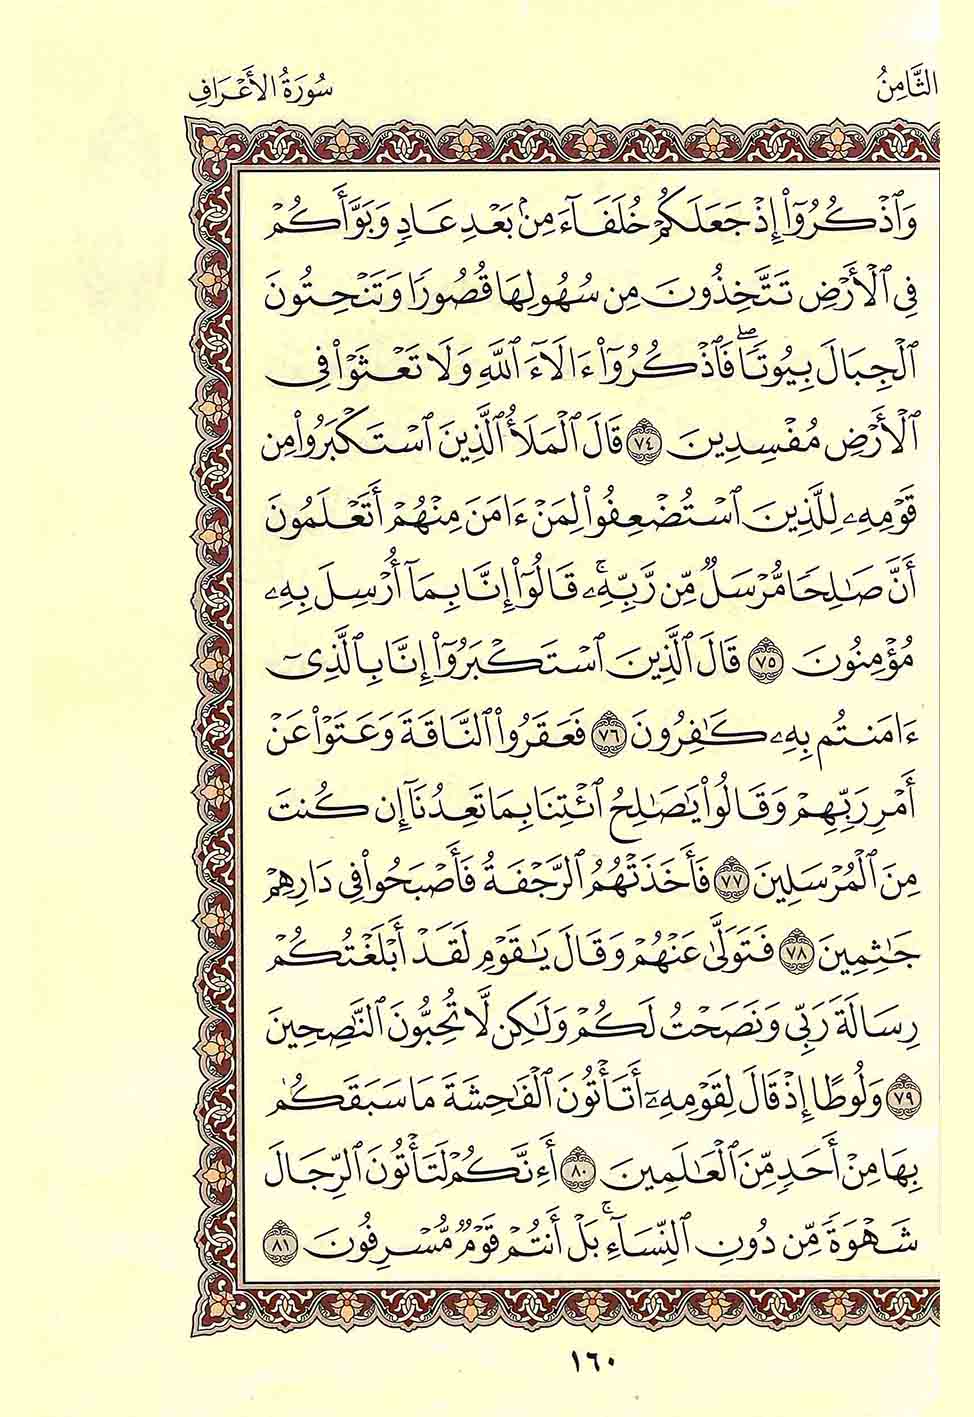 الثَّامِنُ سُورَةُ الأَعۡرَافِ
وَٱذۡكُرُوٓاْ إِذۡ جَعَلَكُمۡ خُلَفَآءَ مِنۢ بَعۡدِ عَادٖ وَبَوَّأَكُمۡ
فِي ٱلۡأَرۡضِ تَتَّخِذُونَ مِن سُهُولِهَا قُصُورٗا وَتَنۡحِتُونَ
ٱلۡجِبَالَ بُيُوتٗاۖ فَٱذۡكُرُوٓاْ ءَالَآءَ ٱللَّهِ وَلَا تَعۡثَوۡاْ فِي
ٱلۡأَرۡضِ مُفۡسِدِينَ ٧٤ قَالَ ٱلۡمَلَأُ ٱلَّذِينَ ٱسۡتَكۡبَرُواْ مِن
قَوۡمِهِۦ لِلَّذِينَ ٱسۡتُضۡعِفُواْ لِمَنۡ ءَامَنَ مِنۡهُمۡ أَتَعۡلَمُونَ
أَنَّ صَٰلِحٗا مُّرۡسَلٞ مِّن رَّبِّهِۦۚ قَالُوٓاْ إِنَّا بِمَآ أُرۡسِلَ بِهِۦ
مُؤۡمِنُونَ ٧٥ قَالَ ٱلَّذِينَ ٱسۡتَكۡبَرُوٓاْ إِنَّا بِٱلَّذِيٓ
ءَامَنتُم بِهِۦ كَٰفِرُونَ ٧٦ فَعَقَرُواْ ٱلنَّاقَةَ وَعَتَوۡاْ عَنۡ
أَمۡرِ رَبِّهِمۡ وَقَالُواْ يَٰصَٰلِحُ ٱئۡتِنَا بِمَا تَعِدُنَآ إِن كُنتَ
مِنَ ٱلۡمُرۡسَلِينَ ٧٧ فَأَخَذَتۡهُمُ ٱلرَّجۡفَةُ فَأَصۡبَحُواْ فِي دَارِهِمۡ
جَٰثِمِينَ ٧٨ فَتَوَلَّىٰ عَنۡهُمۡ وَقَالَ يَٰقَوۡمِ لَقَدۡ أَبۡلَغۡتُكُمۡ
رِسَالَةَ رَبِّي وَنَصَحۡتُ لَكُمۡ وَلَٰكِن لَّا تُحِبُّونَ ٱلنَّٰصِحِينَ
٧٩ وَلُوطًا إِذۡ قَالَ لِقَوۡمِهِۦٓ أَتَأۡتُونَ ٱلۡفَٰحِشَةَ مَا سَبَقَكُم
بِهَا مِنۡ أَحَدٖ مِّنَ ٱلۡعَٰلَمِينَ ٨٠ أَءِنَّكُمۡ لَتَأۡتُونَ ٱلرِّجَالَ
شَهۡوَةٗ مِّن دُونِ ٱلنِّسَآءِۚ بَلۡ أَنتُمۡ قَوۡمٞ مُّسۡرِفُونَ ٨١
١٦٠